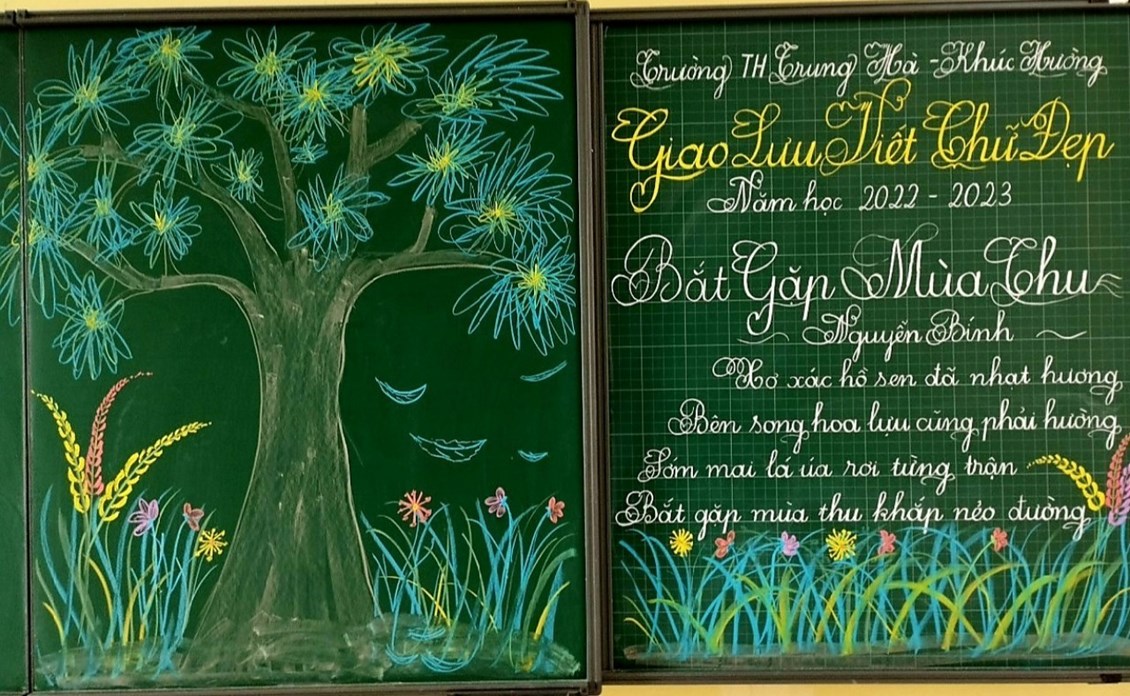 Trường TH Trung Hà - Khúc Hường
Giao Lưu Viết Chữ Đẹp
Năm học 2022 - 2023
Bắt Gặp Mùa Thu
Nguyễn Bính
Xơ xác hồ sen đã nhạt hương
Bên song hoa lựu cũng phải hường
Sớm mai lá úa rơi từng trận
Bắt gặp mùa thu khắp nẻo đường